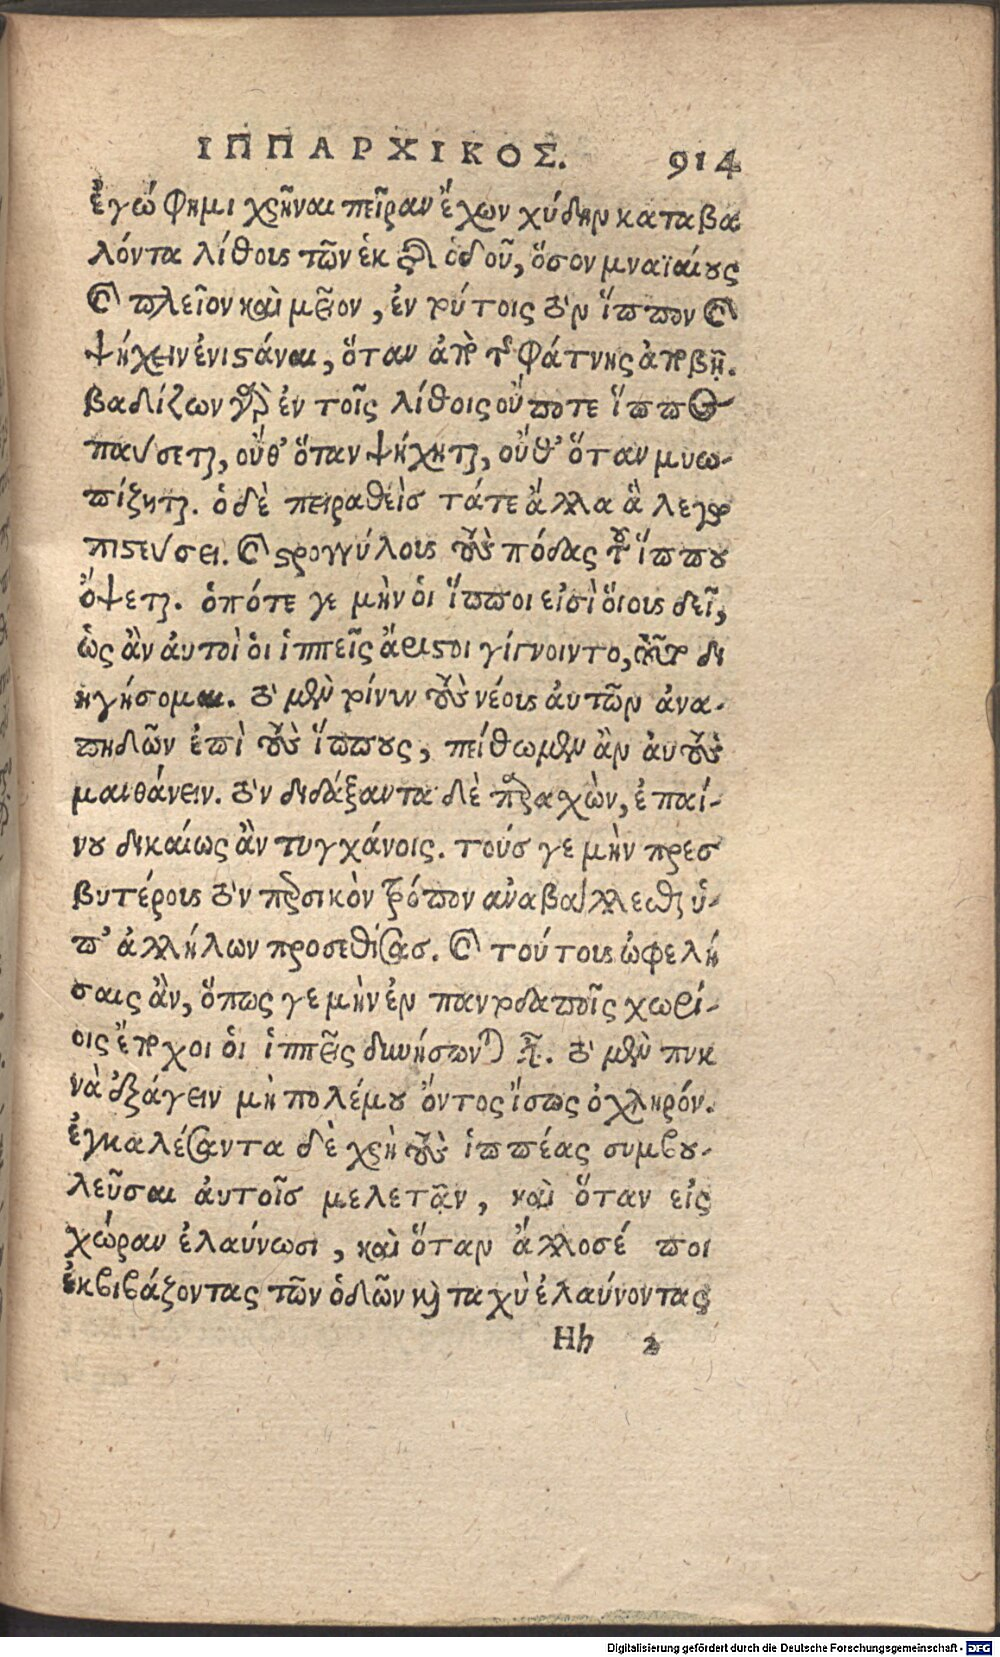 ΙΠΠΑΡΧΙΚΟΣ. 914
ἐγώ φημι χρῆναι πεῖραν ἔχων χύδην καταβα
λόντα λίθους τῶν ἐκ τῆς ὁδοῦ, ὅσον μναϊαίους
καὶ πλεῖον καὶ μεῖον, ἐν τούτοις τὸν ἵππον καὶ
ψήχειν ἐνιστάναι, ὅταν ἀπὸ τῆς φάτνης ἀποβῇ.
βαδίζων γὰρ ἐν τοῖς λίθοις οὔποτε ἵππος
παύσεται, οὔθ’ ὅταν ψήχηται, οὔθ’ ὅταν μυω-
πίζηται. ὁ δὲ πειραθεὶς τά τε ἄλλα ἃ λέγω
πιστεύσει. καὶ στρογγύλους τοὺς πόδας τοῦ ἵππου
ὄψεται. ὁπότε γε μὴν οἱ ἵπποι εἰσὶ οἵους δεῖ,
ὡς ἂν αὐτοὶ οἱ ἱππεῖς ἄριστοι γίγνοιντο, τοῦτο δι
ηγήσομαι. τὸ μὲν τοίνυν τοὺς νέους αὐτῶν ἀνα-
πηδᾶν ἐπὶ τοὺς ἵππους, πείθωμεν ἂν αὐτοὺς
μανθάνειν. τὸν διδάξαντα δὲ παρασχὼν, ἐπαί-
νου δικαίως ἂν τυγχάνοις. τούς γε μὴν πρεσ
βυτέρους τὸν περσικὸν τρόπον ἀναβάλλεσθαι ὑ-
π’ ἀλλήλων προσεθίσας. καὶ τούτους ὠφελή
σαις ἂν, ὅπως γε μὴν ἐν παντοδαποῖς χωρί-
οις ἔποχοι οἱ ἱππεῖς δυνήσονται εἶναι. τὸ μὲν πυκ
νὰ ἐξάγειν μὴ πολέμου ὄντος ἴσως ὀχληρόν.
ἐγκαλέσαντα δὲ χρὴ τοὺς ἱππέας συμβου-
λεῦσαι αὐτοῖς μελετᾶν, καὶ ὅταν εἰς
χώραν ἐλαύνωσι, καὶ ὅταν ἄλλοσέ ποι
ἐκβιβάζοντας τῶν ὁδῶν καὶ ταχὺ ἐλαύνοντας
Hh 2
Digitalisierung gefördert durch die Deutsche Forschungsgemeinschaft - DFG